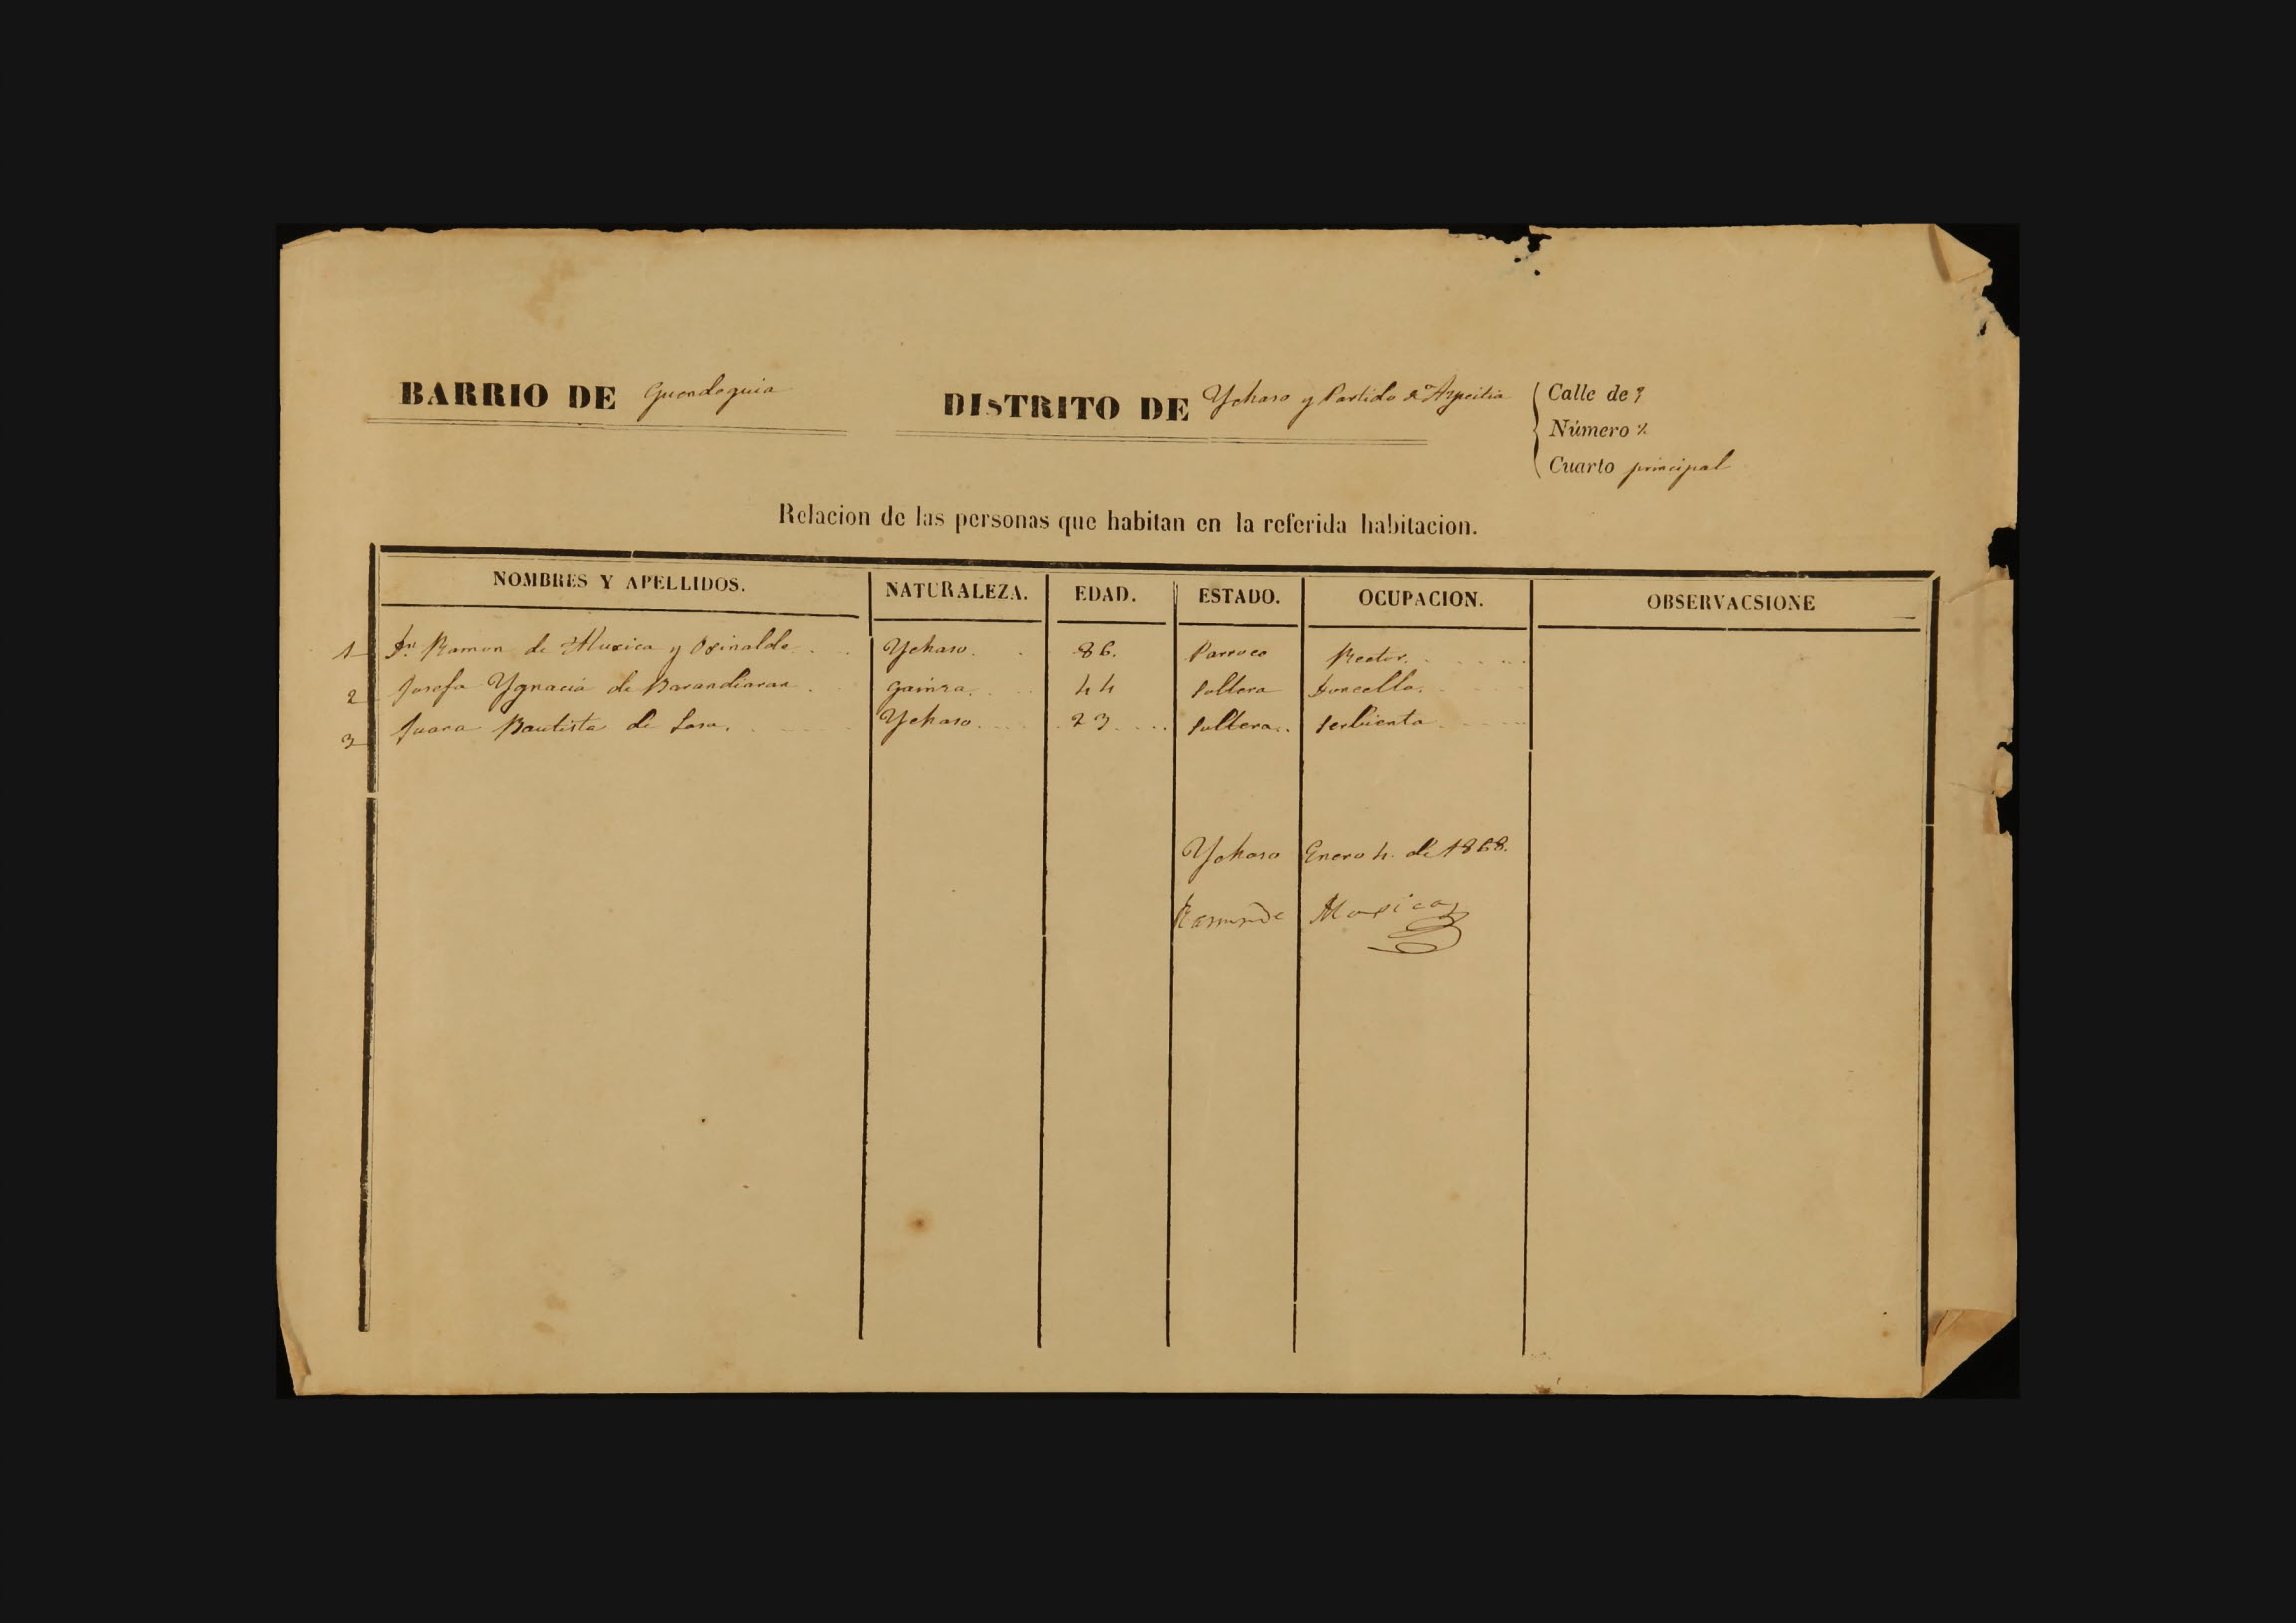 BARRIO DE Guendeguia DISTRITO DE Ychaso y Partido de Azpeitia Calle de
Número
Cuarto principal
Relacion de las personas que habitan en la referida habitacion.
NOMBRES Y APELLIDOS. NATURALEZA. EDAD. ESTADO. OCUPACION. OBSERVACSIONE
1 Dn Ramon de Muxica y Oxinalde Ychaso. 86. Parroco Rector.
2 Josefa Ygnacia de Barandiaran Gainza. 44 Soltera Doncella.
3 Juana Bautista de Lasa. Ychaso. 23 Soltera. Serbienta
Ychaso Enero 4. de 1868.
Ramon de Muxica